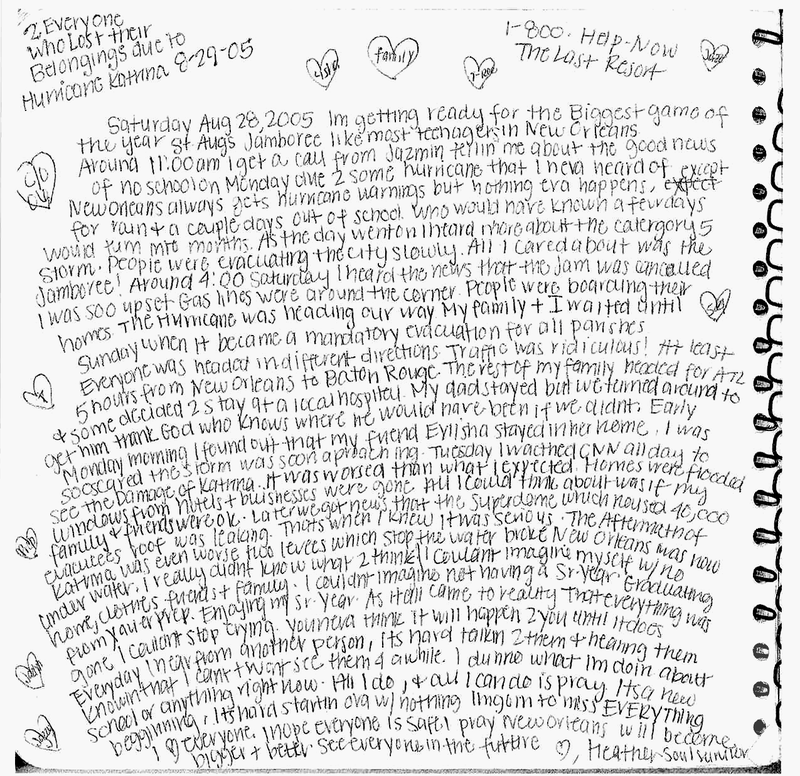 2 Everyone
who Lost their
Belongings due to
Hurricane Katrina 8-29-05
1-800. Help-Now
The Last Resort
family
Saturday Aug 28, 2005 Im getting ready for the Biggest game of
the year St Aug's Jamboree like most teenagers in New Orleans
Around 11:00am I get a call from Jazmin tellin me about the good news
of no school on Monday due 2 some hurricane that I neva heard of except
New Orleans always gets hurricane warnings but nothing eva happens, expect
for rain & a couple days out of school. Who would have known a few days
would turn into months. As the day went on I heard more about the catergory 5
storm. People were evacuating the city slowly. All I cared about was the
Jamboree! Around 4:00 Saturday I heard the news that the jam was cancelled
I was soo upset Gas lines were around the corner. People were boarding their
homes. The Hurricane was heading our way My family + I waited until
Sunday when it became a mandatory evacuation for all parishes
Everyone was headed in different directions. Traffic was ridiculous! At least
5 hours from New Orleans to Baton Rouge. The rest of my family headed for ATL
& some decided 2 stay at a local hospital. My dad stayed but we turned around to
get him thank God who knows where he would have been if we didnt. Early
Monday morning I found out that my friend stayed in her home. I was
sooscared the storm was soon aproaching. Tuesday I wacthed CNN all day to
see the Damage of Katrina. It was worsed than what I expected. Homes were flooded
windows from hotels + buisnesses were gone. All I could think about was if my
family + friends were ok. Later we got news that the Superdome which housed 40,000
evacutees roof was leaking. Thats when I knew it was serious. The Aftermath of
Katrina was even worse two levees which stop the water broke New Orleans was now
under water. I really didnt know what 2 think! I couldnt imagine myself w/ no
home, clothes, friends + family. I couldnt imagine not having a Sr. Year. Graduating
from your prep. Enjoying my sr. year. As it all came to reality that everything was
gone I couldnt stop crying. You neva think it will happen 2 you until it does
Everyday I hear from another person, its hard talkin 2 them + hearing them
knowin that I cant + wont see them 4 awhile. I dunno what Im doin about
school or anything right now. All I do, + all I can do is pray. Its a new
begginning. Its hard startin ova w/ nothing. Imgom to miss EVERYTHING
I ♡ everyone. I hope everyone is safe. I pray New Orleans will become
bigger + better. See everyone in the future ♡, Heather-Soul Survivor